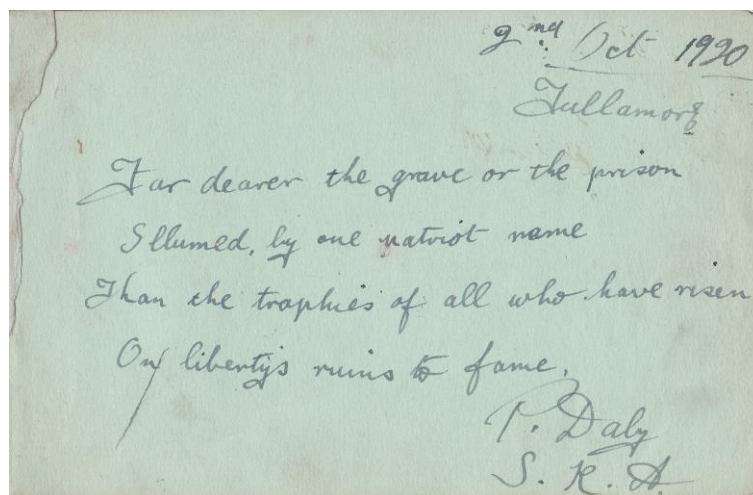 2nd Oct 1920
Tullamore
Far dearer the grave or the prison
Illumed, by one patriot name
Than the trophies of all who have risen
On liberty's ruins to fame.
P. Daly
S. R. A